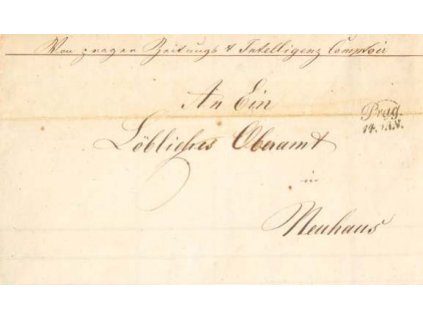 Von prager Zeitungs & Intelligenz Comptoir
An Ein
Prag.
14. JAN.
Löbliches Oberamt
in
Neuhaus